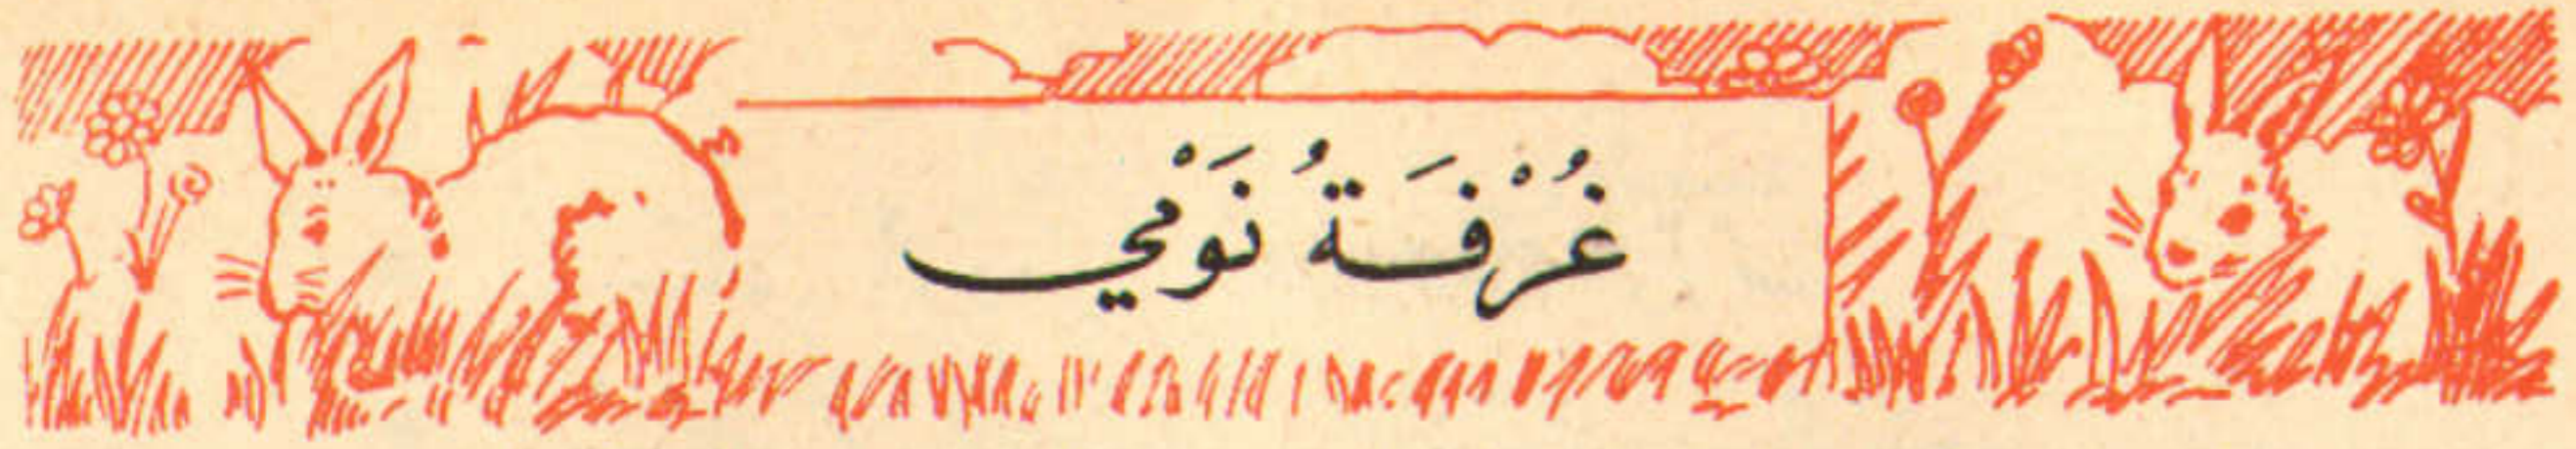 غُرْفَةُ نَوْمي